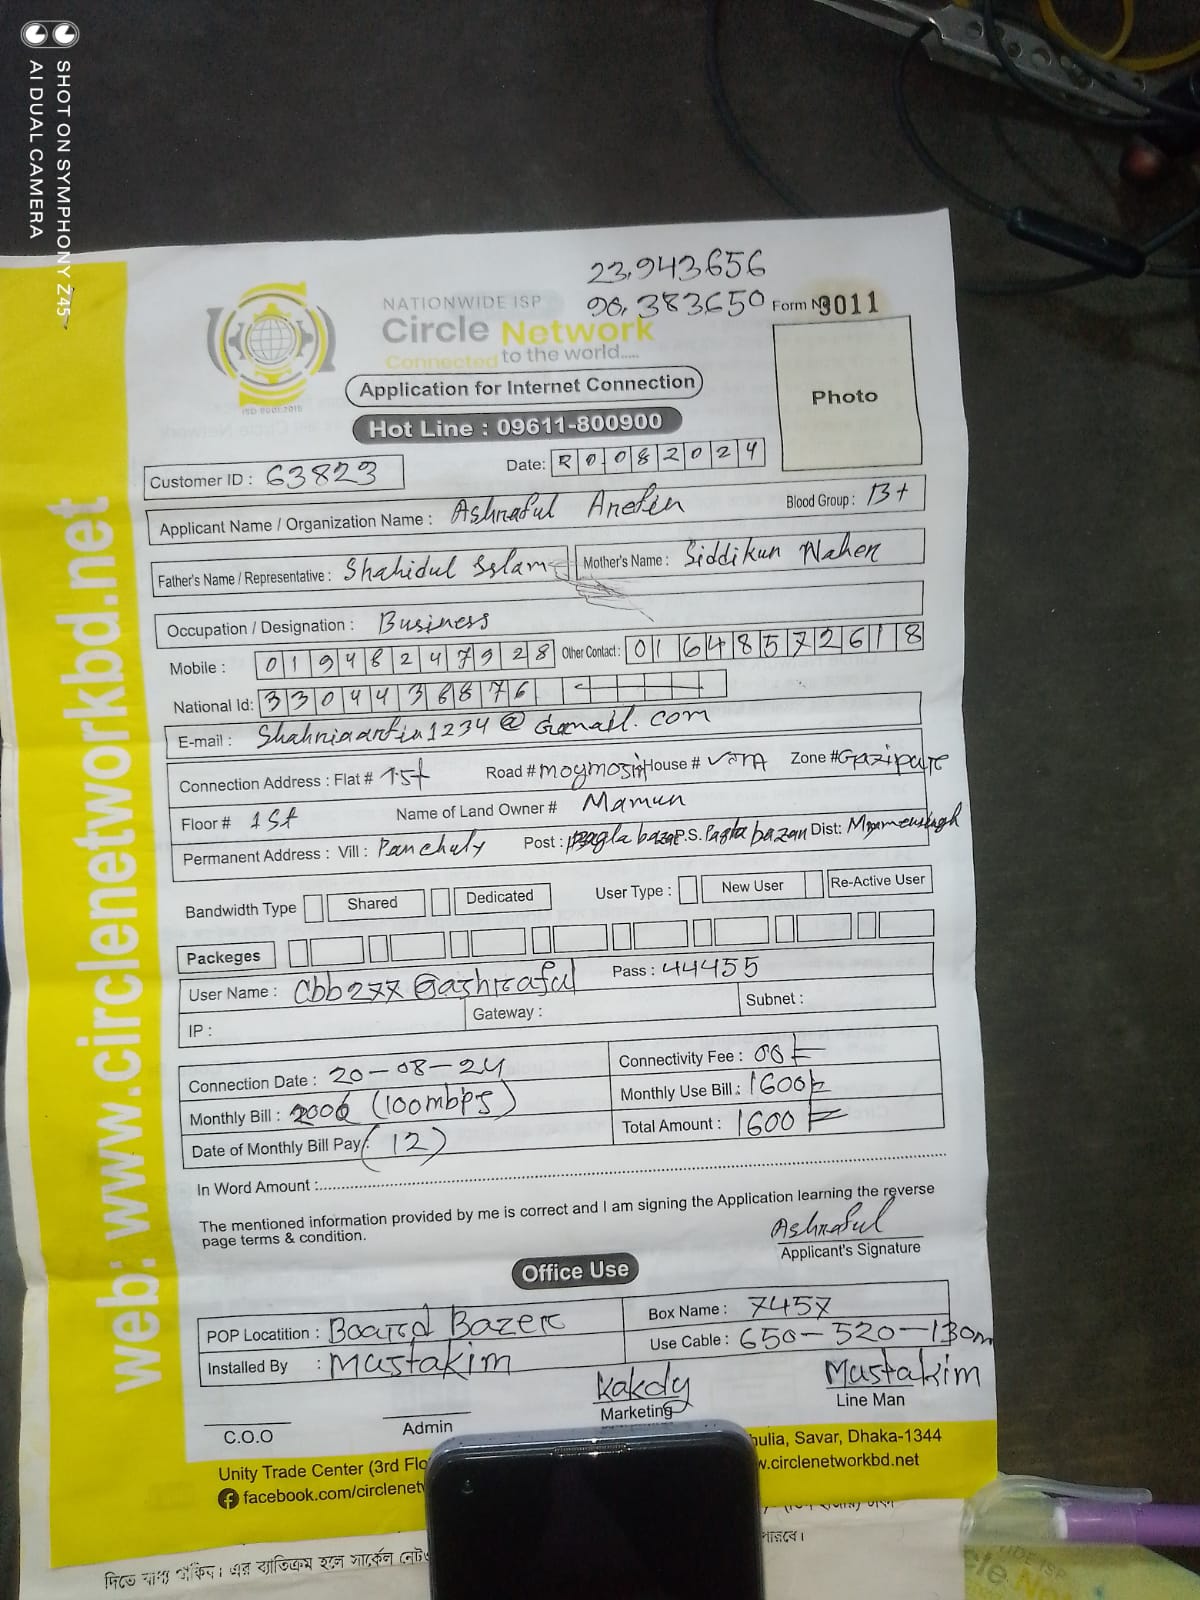 SHOT ON SYMPHONY Z45
AI DUAL CAMERA
web: www.circlenetworkbd.net
23.943656
90.383650
Form No 3011
NATIONWIDE ISP
Circle Network
Connected to the world.....
ISO 9001:2015
Application for Internet Connection
Hot Line : 09611-800900
Photo
Customer ID : 63823
Date: 20082024
Applicant Name / Organization Name : Ashraful Arefin Blood Group : B+
Father's Name / Representative : Shahidul Islam Mother's Name : Siddikun Naher
Occupation / Designation : Business
Mobile : 01948247928 Other Contact : 01648572618
National Id: 3304436876
E-mail : @ Gmail. com
Connection Address : Flat # 1st Road # House # Zone # Gazipure
Floor # 1st Name of Land Owner # Mamun
Permanent Address : Vill : Panchuly Post : Pagla bazar P.S. Pagla bazar Dist: Mymensingh
Bandwidth Type Shared Dedicated User Type : New User Re-Active User
Packeges
User Name : Cbb277@ashraful Pass : 44455
IP : Gateway : Subnet :
Connection Date : 20-08-24 Connectivity Fee : 00
Monthly Bill : 2000 (100mbps) Monthly Use Bill : 1600
Date of Monthly Bill Pay : (12) Total Amount : 1600
In Word Amount :
The mentioned information provided by me is correct and I am signing the Application learning the reverse
page terms & condition.
Ashraful
Applicant's Signature
Office Use
POP Locatition : Board Bazer Box Name : 7457
Installed By : Mustakim Use Cable : 650-520-130m
Kakoly Mustakim
C.O.O Admin Marketing Line Man
Unity Trade Center (3rd Flo hulia, Savar, Dhaka-1344
facebook.com/circlenet w.circlenetworkbd.net
দিতে বাধ্য থাকিব। এর ব্যতিক্রম হলে সার্কেল নেট পারবে।